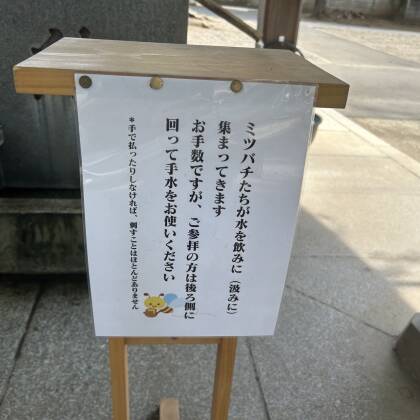 ミツバチたちが水を飲みに（汲みに）
集まってきます
お手数ですが、ご参拝の方は後ろ側に
回って手水をお使いください
＊手で払ったりしなければ、刺すことはほとんどありません